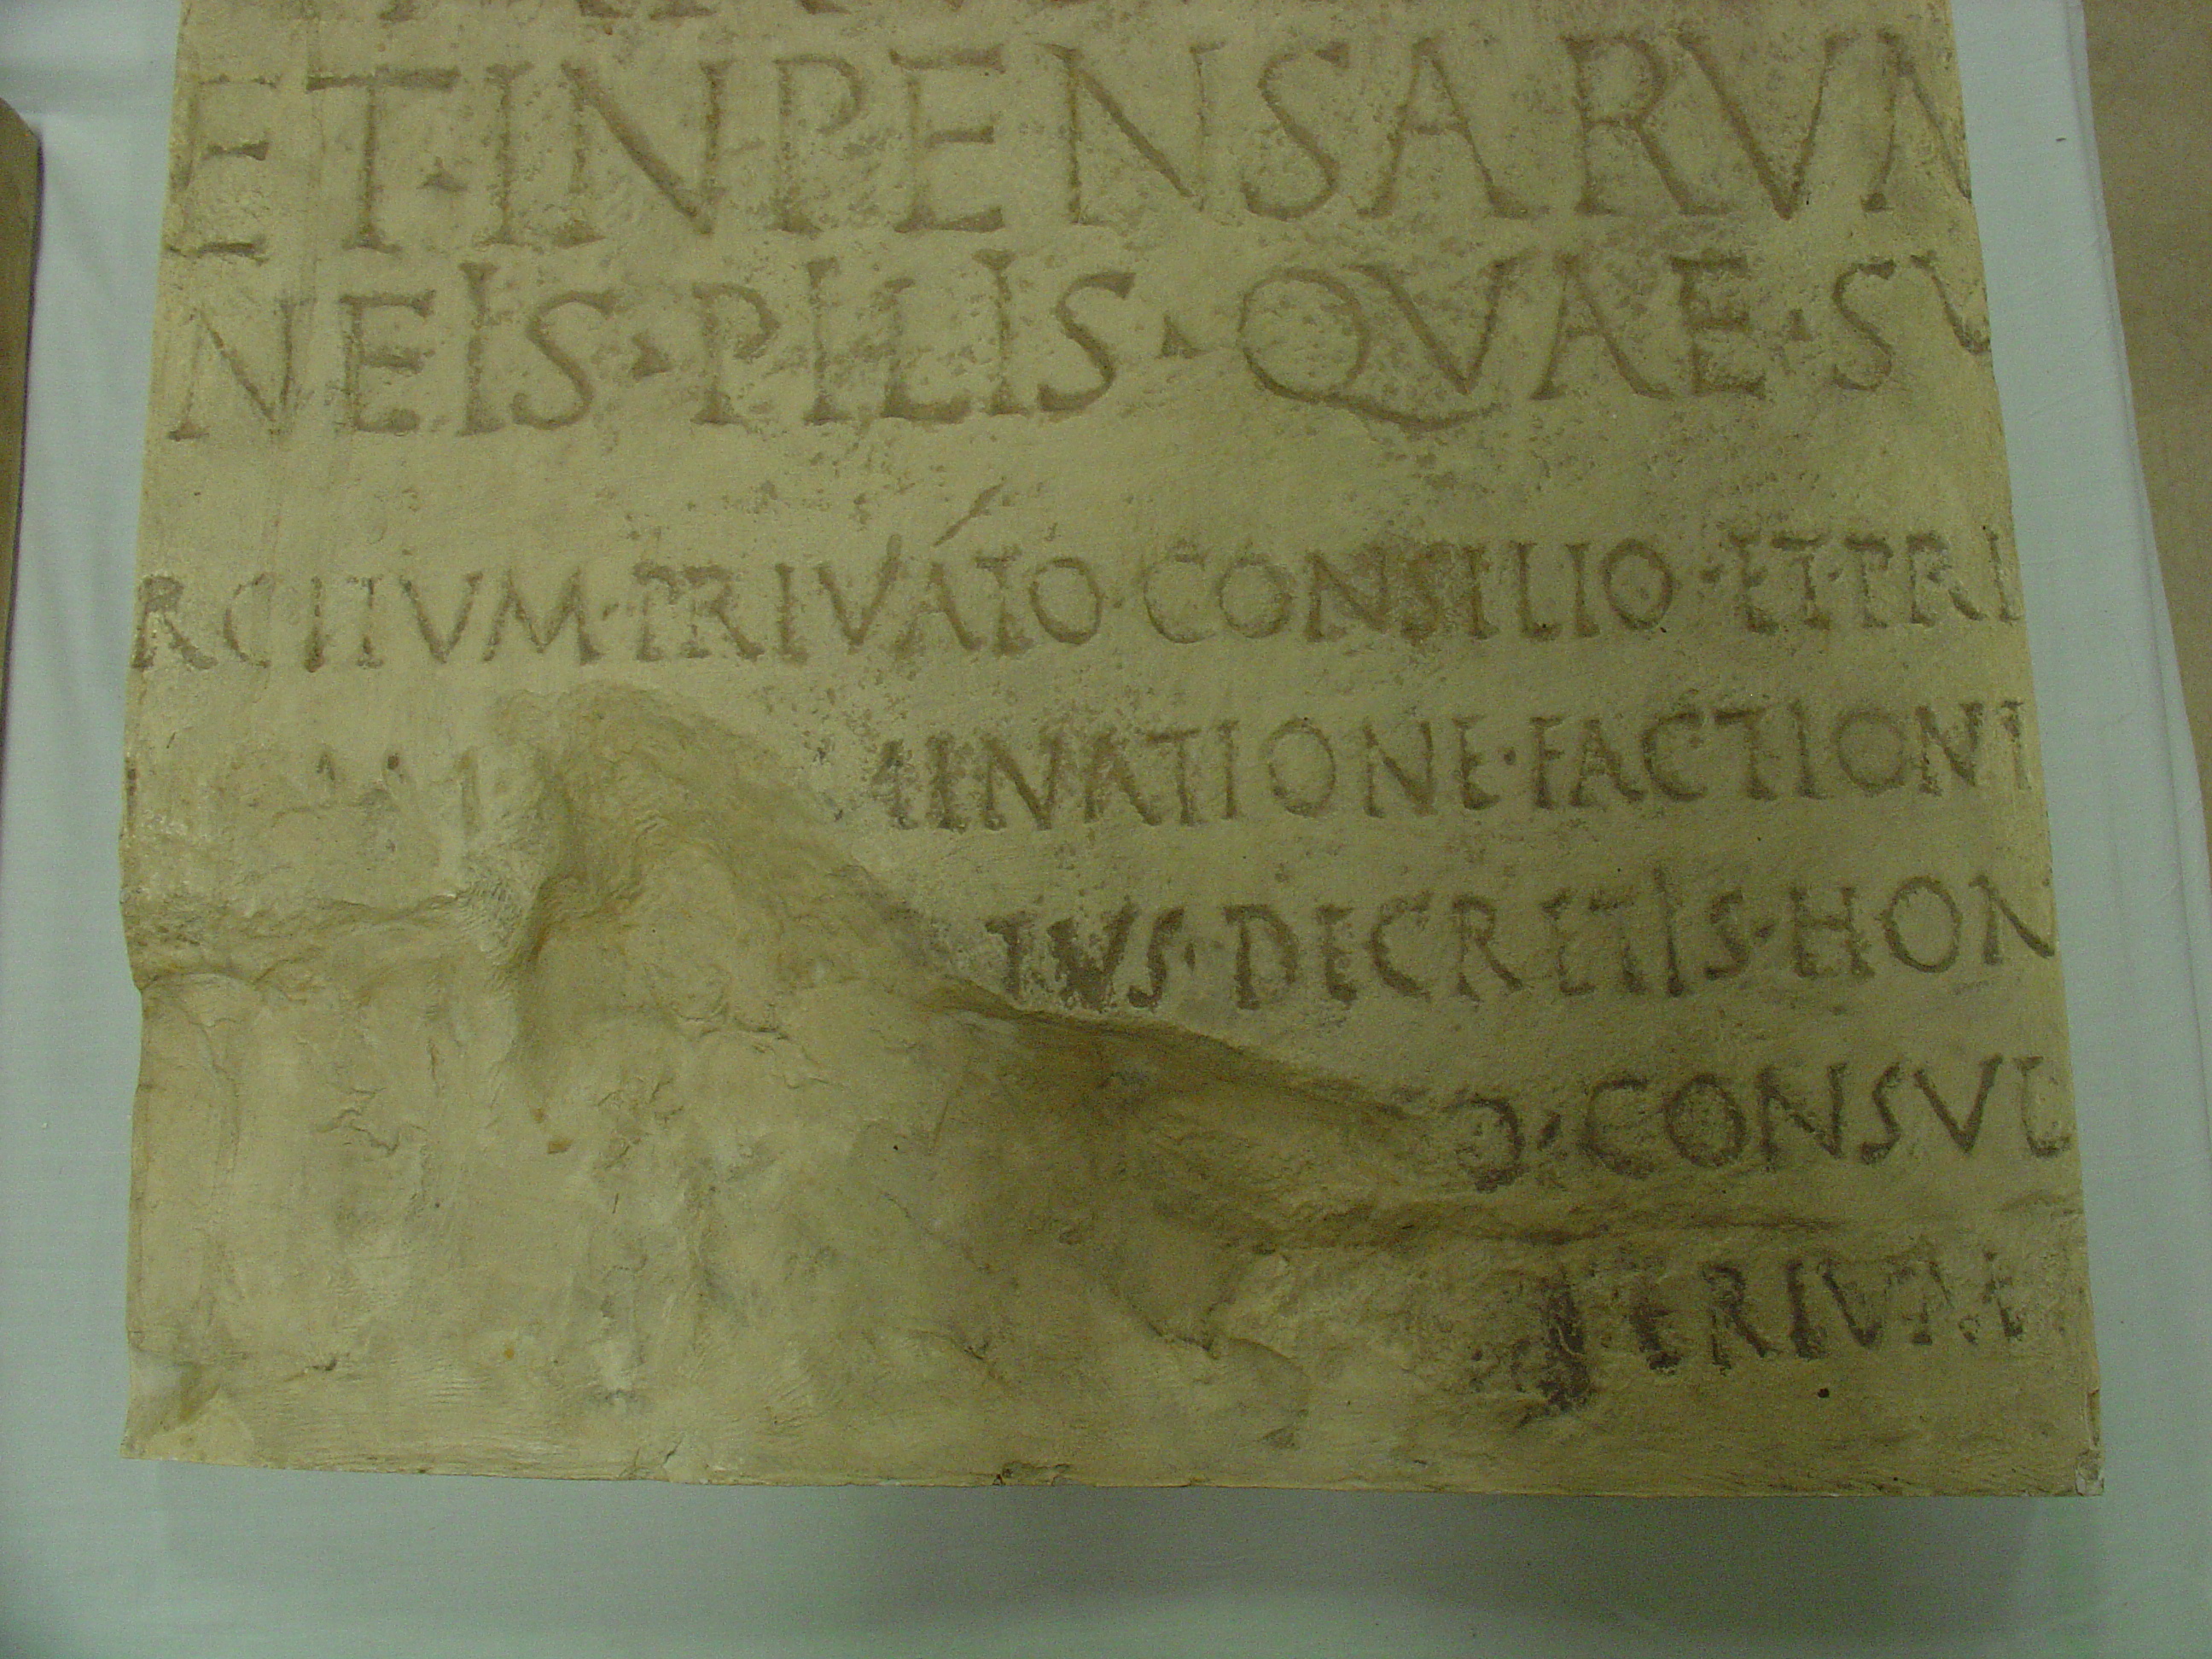 ET·INPENSARVM
NEIS·PILIS·QVAE·SV
RCITVM·PRIVÁTO·CONSILIO·ET·PRI
MINATIONE·FACTIONI
IVS·DECRETIS·HON
O·CONSVL
TERTIVM